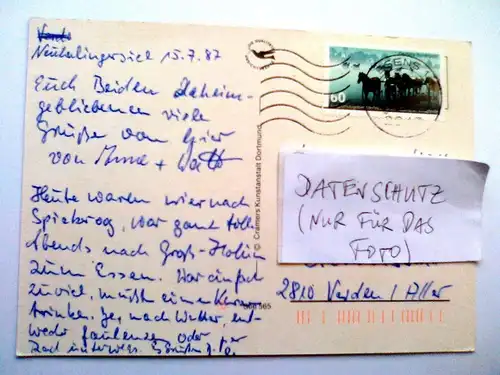 Neuharlingersiel 15.7.87
Euch Beiden Daheim-
gebliebenen viele
Grüße von hier
von
Heute waren wir nach
Spiekeroog, war ganz toll
Abends nach Groß-Holum
zum Essen. War einfach
zuviel, mußte einen Korn
trinken. Je nach Wetter, ent-
weder faulenzen oder per
Rad unterwegs.
© Cramers Kunstanstalt Dortmund
565
60
ESENS
DATENSCHUTZ
(NUR FÜR DAS
FOTO)
2810 Verden / Aller